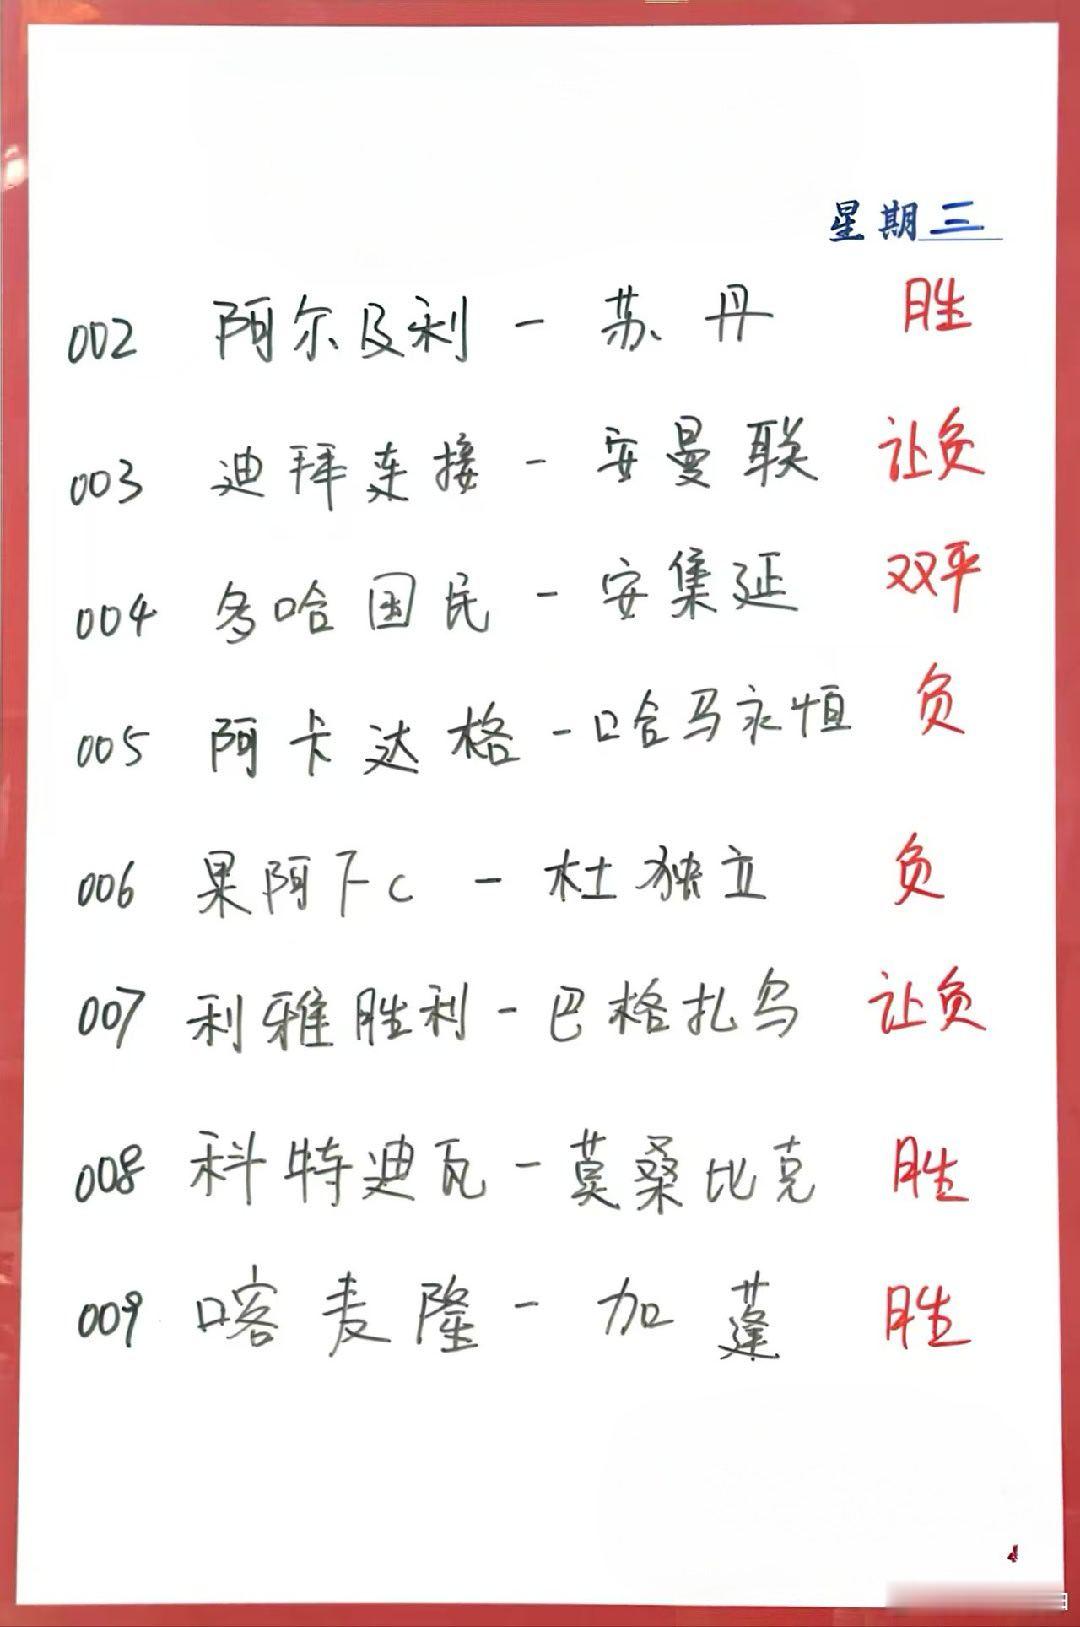 星期三
002 阿尔及利 - 苏丹 胜
003 迪拜连接 - 安曼联 让负
004 多哈国民 - 安集延 双平
005 阿卡达格 - 哈马永恒 负
006 果阿FC - 杜独立 负
007 利雅胜利 - 巴格扎乌 让负
008 科特迪瓦 - 莫桑比克 胜
009 喀麦隆 - 加蓬 胜